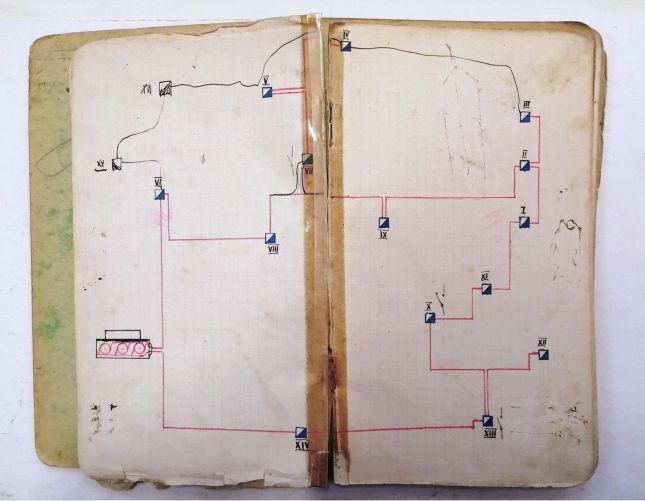 IV
V
III
XV
II
VI
VII
I
IX
VIII
XI
X
XII
XIII
XIV